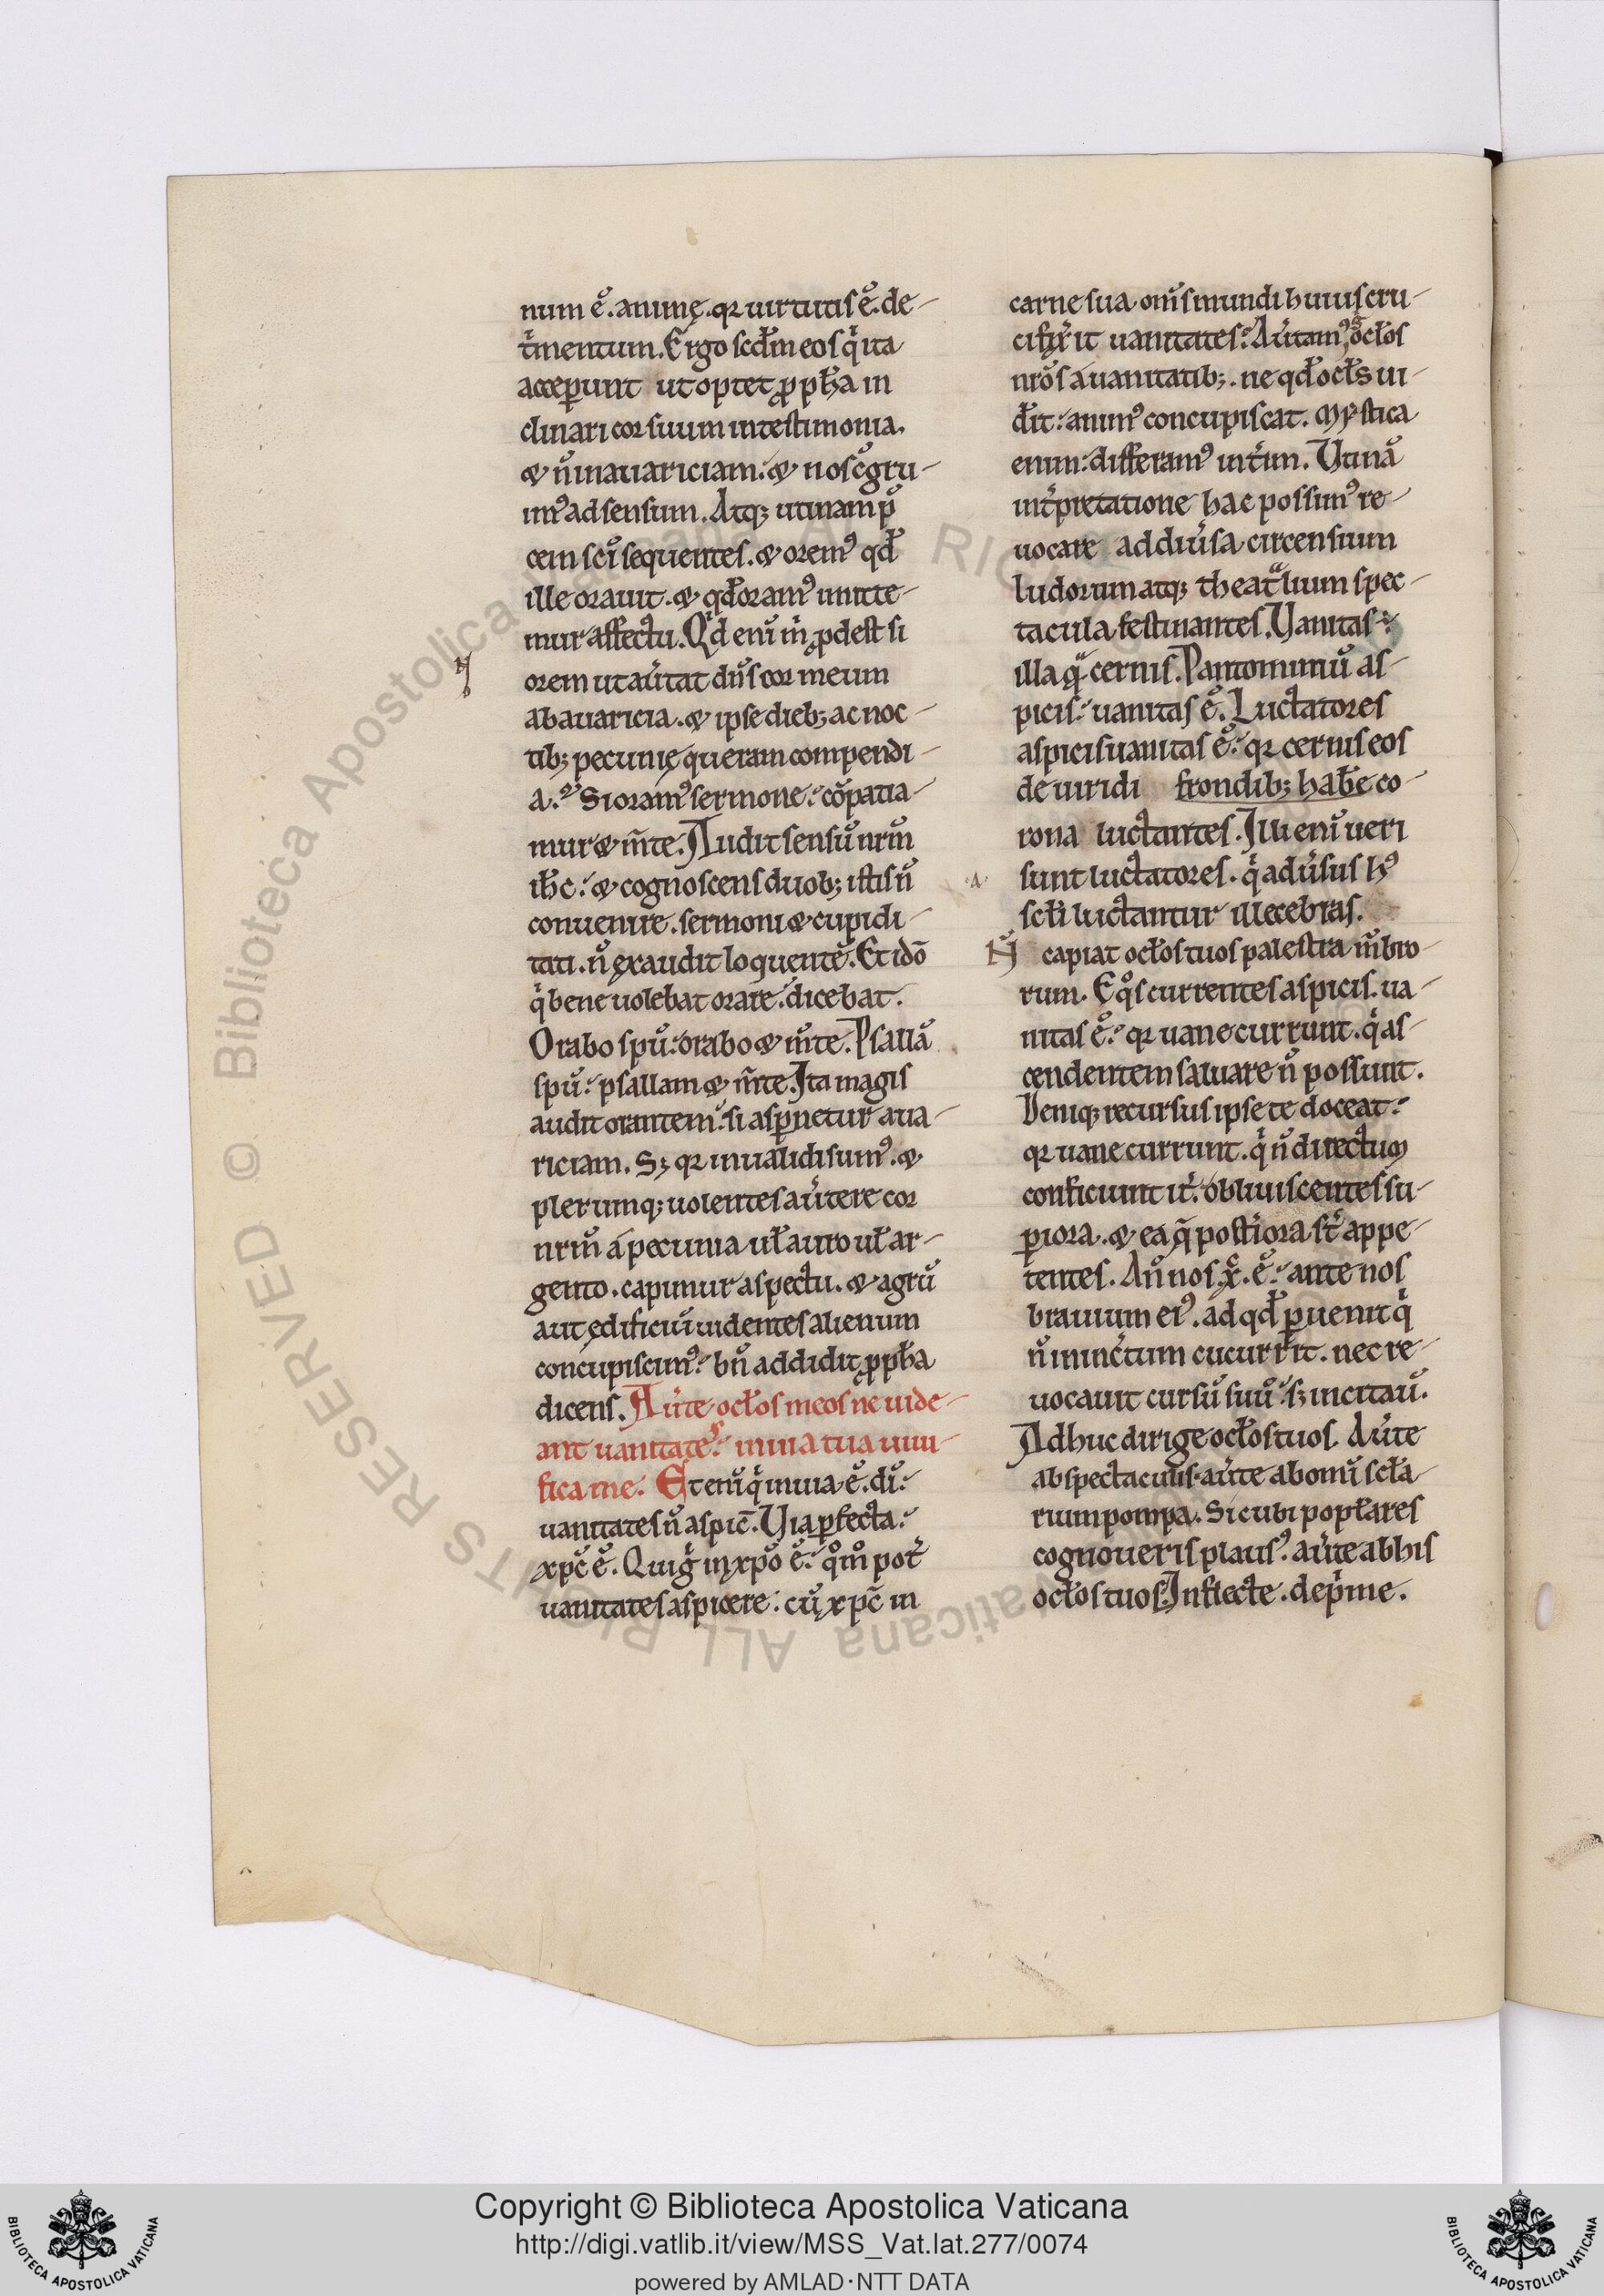 num ē. animę. qr uirtutis ē. de-
t'mentum. Ergo scd̄m eos q' ita
acceꝑunt ut optet ꝓpħa in
clinari cor suum in testimonia.
& n̄ in auariciam: & nos c̄gru-
im' ad sensum. Atq; utinam p̄
cem sc̄i sequentes. & orem' qđ
ille orauit. & qđ oram' imite-
mur affectu. Qđ eni m' ꝓdest si
orem ut au'tat dn̄s cor meum
ab auaricia. & ipse dieb; ac noc-
tib; pecunię queram compendi-
a. Si oram' sermone: cōpatia-
mur & m̄te. Audit sensū nr̄m
iħc: & cognoscens duob; istis n̄
conuenire. sermoni & cupidi-
tati. n̄ exaudit loquentē. Et idō
q' bene uolebat orare: dicebat.
Orabo spū: orabo & m̄te. Psallā
spū: psallam & m̄te. Ita magis
audit orantem: si asꝑnetur aua-
riciam. S; qr inualidi sum'. &
plerumq; uolentes au'tere cor
nr̄m á pecunia uł auro uł ar-
gento. capimur aspectu. & agrū
aut ędificiū uidentes alienum
concupiscim': bn̄ addidit ꝓpħa
dicens. Au'te ocłos meos ne uide-
ant uanitatē: in uia tua uiui-
fica me. Etenī q' in uia ē. dī:
uanitates n̄ aspic̄. Uia ꝑfecta:
xp̄c ē. Qui g' in xp̄o ē: qm̊ pot'
uanitates aspicere: cū xp̄c in
carne sua om̄s mundi huius cru-
cifix'it uanitates: Au'tam' g' ocłos
nr̄os á uanitatib;. ne qđ ocłs ui-
đit: anim' concupiscat. Mystica
enim: differam' int'im. Utinā
int'pretatione hac possim' re-
uocare ad diu'sa circensium
ludorum atq; theat'lium spec-
tacula festinantes. Uanitas:
illa q̄ cernis. Pantomimū as-
picis: uanitas ē. Luctatores
aspicis uanitas ē: qr cernis eos
de uiridi frondib; habe co-
rona luctantes. Illi eni ueri
sunt luctatores. q' adu'sus h'
scłi luctantur illecebras.
N̄ capiat ocłos tuos palestra m̄bro-
rum. Eqͦs currentes aspicis. ua-
nitas ē: qr uane currunt. q' as-
cendentem saluare n̄ possunt.
Deniq; recursus ipse te doceat:
qr uane currunt. q' n̄ directum
conficiunt it': obliuiscentes su-
ꝑiora. & ea q̄ post'iora st' appe-
tentes. An̄ nos x̄. ē: ante nos
brauium ei'. ad qđ ꝑuenit q'
n̄ in inc'tum cucurrit. nec re-
uocauit cursū suū: s; incitau̅.
Adhuc dirige ocłos tuos. Au'te
ab spectaculis. au'te ab omī scła-
rium pompa. Sicubi popłares
cognoueris plaus'. au'te ab his
ocłos tuos: Inflecte. dep'me.
Copyright © Biblioteca Apostolica Vaticana
http://digi.vatlib.it/view/MSS_Vat.lat.277/0074
powered by AMLAD·NTT DATA
BIBLIOTECA APOSTOLICA VATICANA
BIBLIOTECA APOSTOLICA VATICANA
© Biblioteca Apostolica Vaticana ALL RIGHTS RESERVED